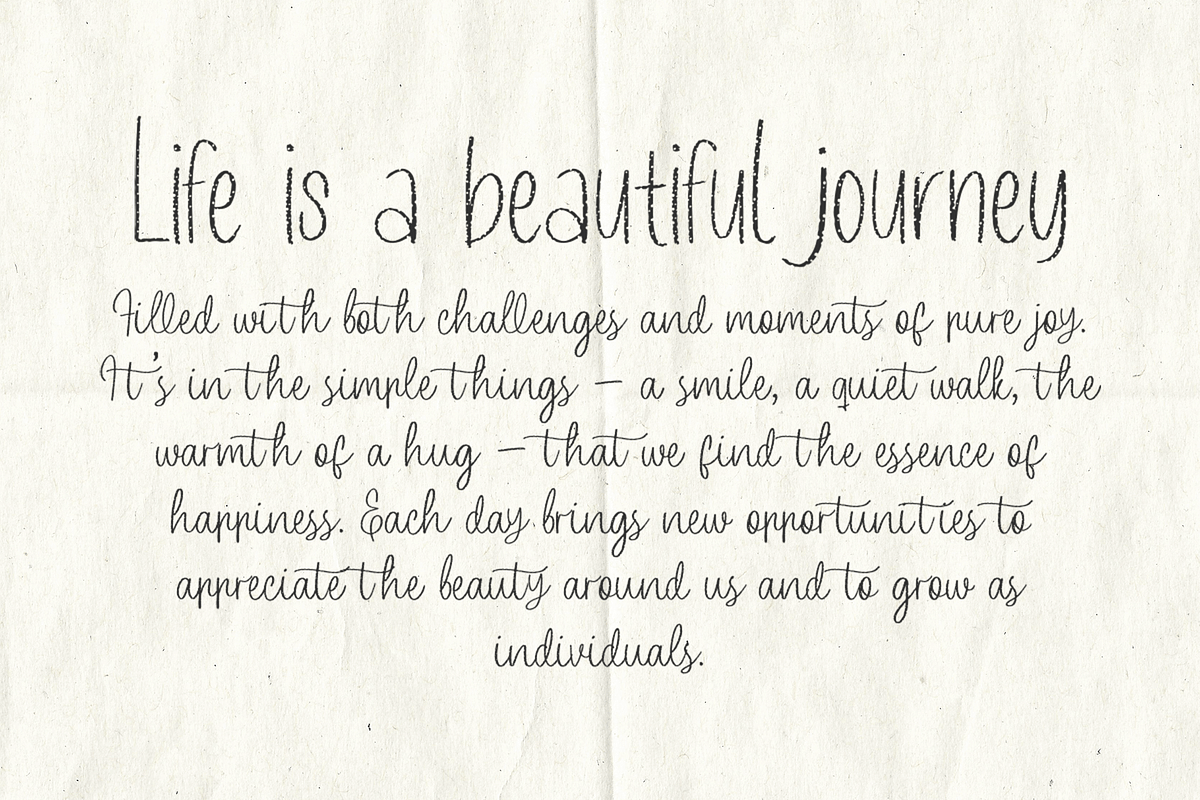 Life is a beautiful journey
Filled with both challenges and moments of pure joy.
It's in the simple things – a smile, a quiet walk, the
warmth of a hug – that we find the essence of
happiness. Each day brings new opportunities to
appreciate the beauty around us and to grow as
individuals.